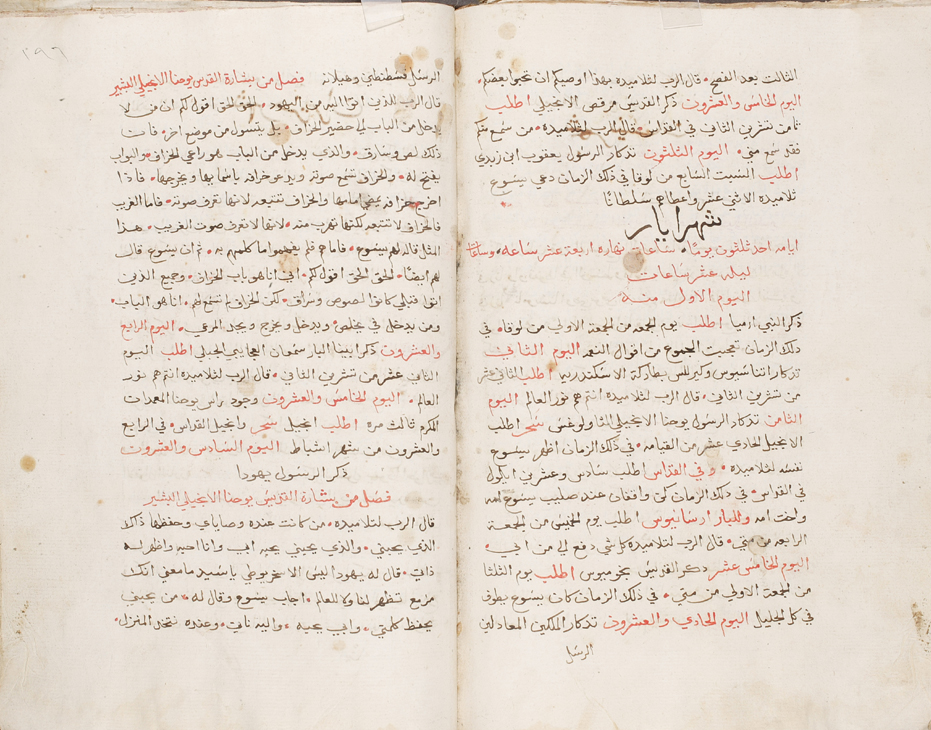 الثالث بعد الفصح • قال الرب لتلاميذه بهذا اوصيكم ان تحبوا بعضكم •
اليوم الخامس والعشرون ذكر القديس مرقص الانجيلي اطلب
ثامن تشرين الثاني في القداس • قال الرب لتلاميذه • من سمع منكم
فقد سمع مني • اليوم الثلثون تدكار الرسول يعقوب ابن زبدي
اطلب السبت السابع من لوقا في ذلك الزمان دعي يسوع
تلاميذه الاثني عشر واعطاهم سلطانا
شهر ايار
ايامه احد ثلثون يومًا • ساعات نهاره اربعة عشر ساعه • وساعات
ليله عشر ساعات
اليوم الاول منه
ذكر النبي ارميا اطلب يوم الجمعه من الجمعة الاولي من لوقا • في
دلك الزمان تعجبت الجموع من اقوال النعمه اليوم الثاني
تدكار اتناسيوس وكيرللس بطاركة الاسكندريه اطلب الثاني عشر
من تشرين الثاني • قال الرب لتلاميذه انتم هم نور العالم اليوم
الثامن تدكار الرسول يوحنا الانجيلي الثاولوغس سحر اطلب
الانجيل الحادي عشر من القيامه • في ذلك الزمان اظهر يسوع
نفسه لتلاميذه • وفي القداس اطلب سادس وعشرين ايلول
في القداس • في دلك الزمان كن واقفات عند صليب يسوع امه
واخت امه وللبار ارسانيوس اطلب يوم الخميس من الجمعة
الرابعه من متي • قال الرب لتلاميذه كل شي دفع لي من ابي •
اليوم الخامس عشر دكر القديس بخوميوس اطلب يوم الثلثا
من الجمعة الاولي من متي • في ذلك الزمان كان يسوع يطوف
في كل الجليل اليوم الحادي والعشرون تدكار الملكين المعادلين
الرسل
٢٩٦
الرسل قسطنطين وهيلانه فصل من بشارة القديس يوحنا الانجيلي البشير
قال الرب للذين اتوا اليه من اليهود • الحق الحق اقول لكم ان من لا
يدخل من الباب الي حضير الخراف • بل يتسور من موضع اخر • فان
ذلك لص وسارق • والذي يدخل من الباب هو راعي الخراف • والبواب
يفتح له • والخراف تسمع صوته ويدعو خرافه باسمايها ويخرجها • فاذا
اخرج خرافه يمضي امامها والخراف تتبعه لانها تعرف صوته • فاما الغريب
فالخراف لا تتبعه لكنها تهرب منه • لانها لا تعرف صوت الغريب • هذا
المثل قاله لهم يسوع • فاما هم فلم يفهموا ما كلمهم به • ثم ان يسوع قال
لهم ايضًا • الحق الحق اقول لكم • اني انا هو باب الخراف • وجميع الذين
اتوا قبلي كانوا لصوص وسراق • لكن الخراف لم تسمع لهم • انا هو الباب •
ومن يدخل في يخلص ويدخل ويخرج ويجد المرعي • اليوم الرابع
والعشرون ذكر ابينا البار سمعان العجايبي الجبلي اطلب اليوم
الثاني عشر من تشرين الثاني • قال الرب لتلاميذه انتم هم نور
العالم • اليوم الخامس والعشرون وجود راس يوحنا المعمدان
المكرم ثالث مره اطلب انجيل سحر وانجيل القداس • في الرابع
والعشرون من شهر اشباط اليوم السادس والعشرون
ذكر الرسول يهودا
فصل من بشارة القديس يوحنا الانجيلي البشير
قال الرب لتلاميذه • من كانت عنده وصاياي وحفظها ذاك
الذي يحبني • والذي يحبني يحبه ابي وانا احبه واظهر له
ذاتي • قال له يهودا ليس الاسخريوطي يا سيد ما معني انك
مزمع تظهر لنا ولا للعالم • اجاب يسوع وقال له • من يحبني
يحفظ كلمتي • وابي يحبه • واليه ناتي • وعنده نتخد المنزل •